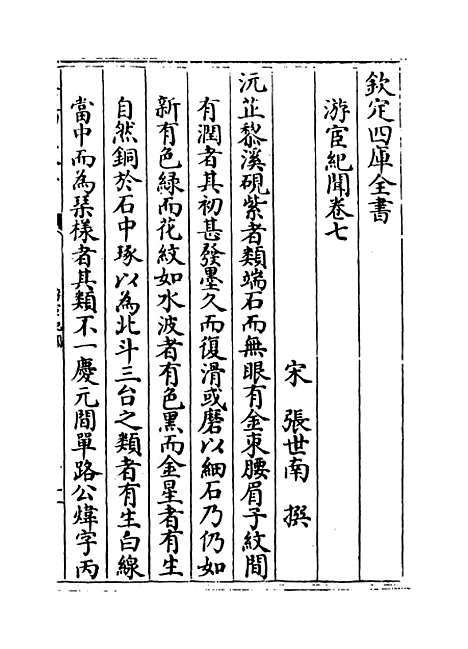 欽定四庫全書
游宦紀聞卷七
宋 張世南 撰
沅芷黎溪硯紫者類端石而無眼有金束腰眉子紋間
有潤者其初甚發墨久而復滑或磨以細石乃仍如
新有色緑而花紋如水波者有色黑而金星者有生
自然銅於石中琢以為北斗三台之類者有生白線
當中而為琹様者其類不一慶元間單路公煒字丙